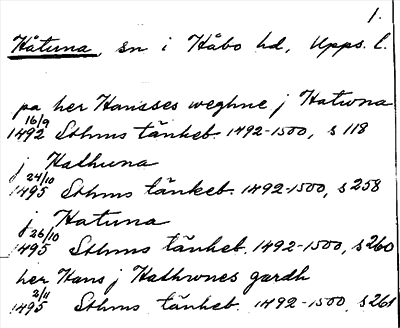 1.
Håtuna, sn i Håbo hd, Upps. l.
pa her Hansses weghne j Hatwna
16/9 1492 Sthms tänkeb. 1492-1500, s 118
j Hathuna
24/10 1495 Sthms tänkeb. 1492-1500, s 258
j Hatuna
26/10 1495 Sthms tänkeb. 1492-1500, s 260
her Hans j Hathwnes gardh
2/11 1495 Sthms tänkeb. 1492-1500, s 261